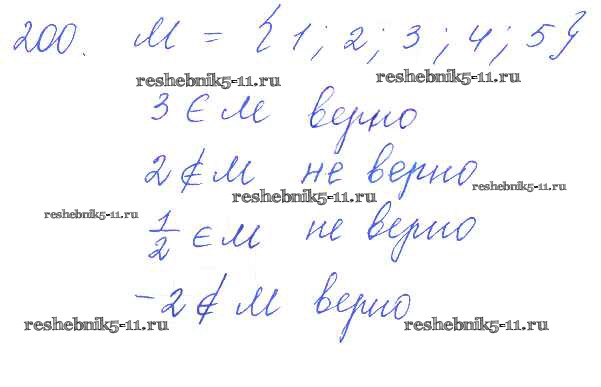 200. M = {1; 2; 3; 4; 5}
reshebnik5-11.ru reshebnik5-11.ru
3 ∈ M верно
2 ∉ M не верно
reshebnik5-11.ru reshebnik5-11.ru
reshebnik5-11.ru
1/2 ∈ M не верно
-2 ∉ M верно
reshebnik5-11.ru reshebnik5-11.ru